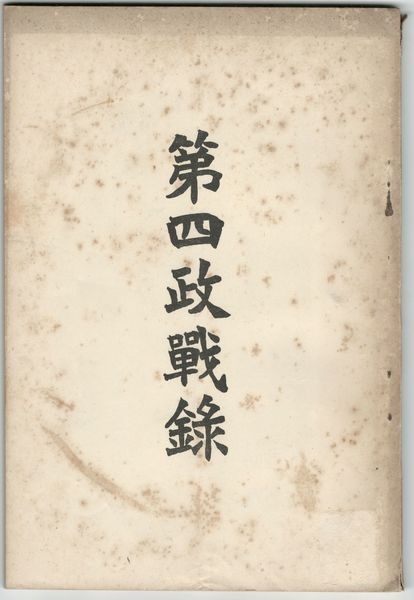 第四政戰錄